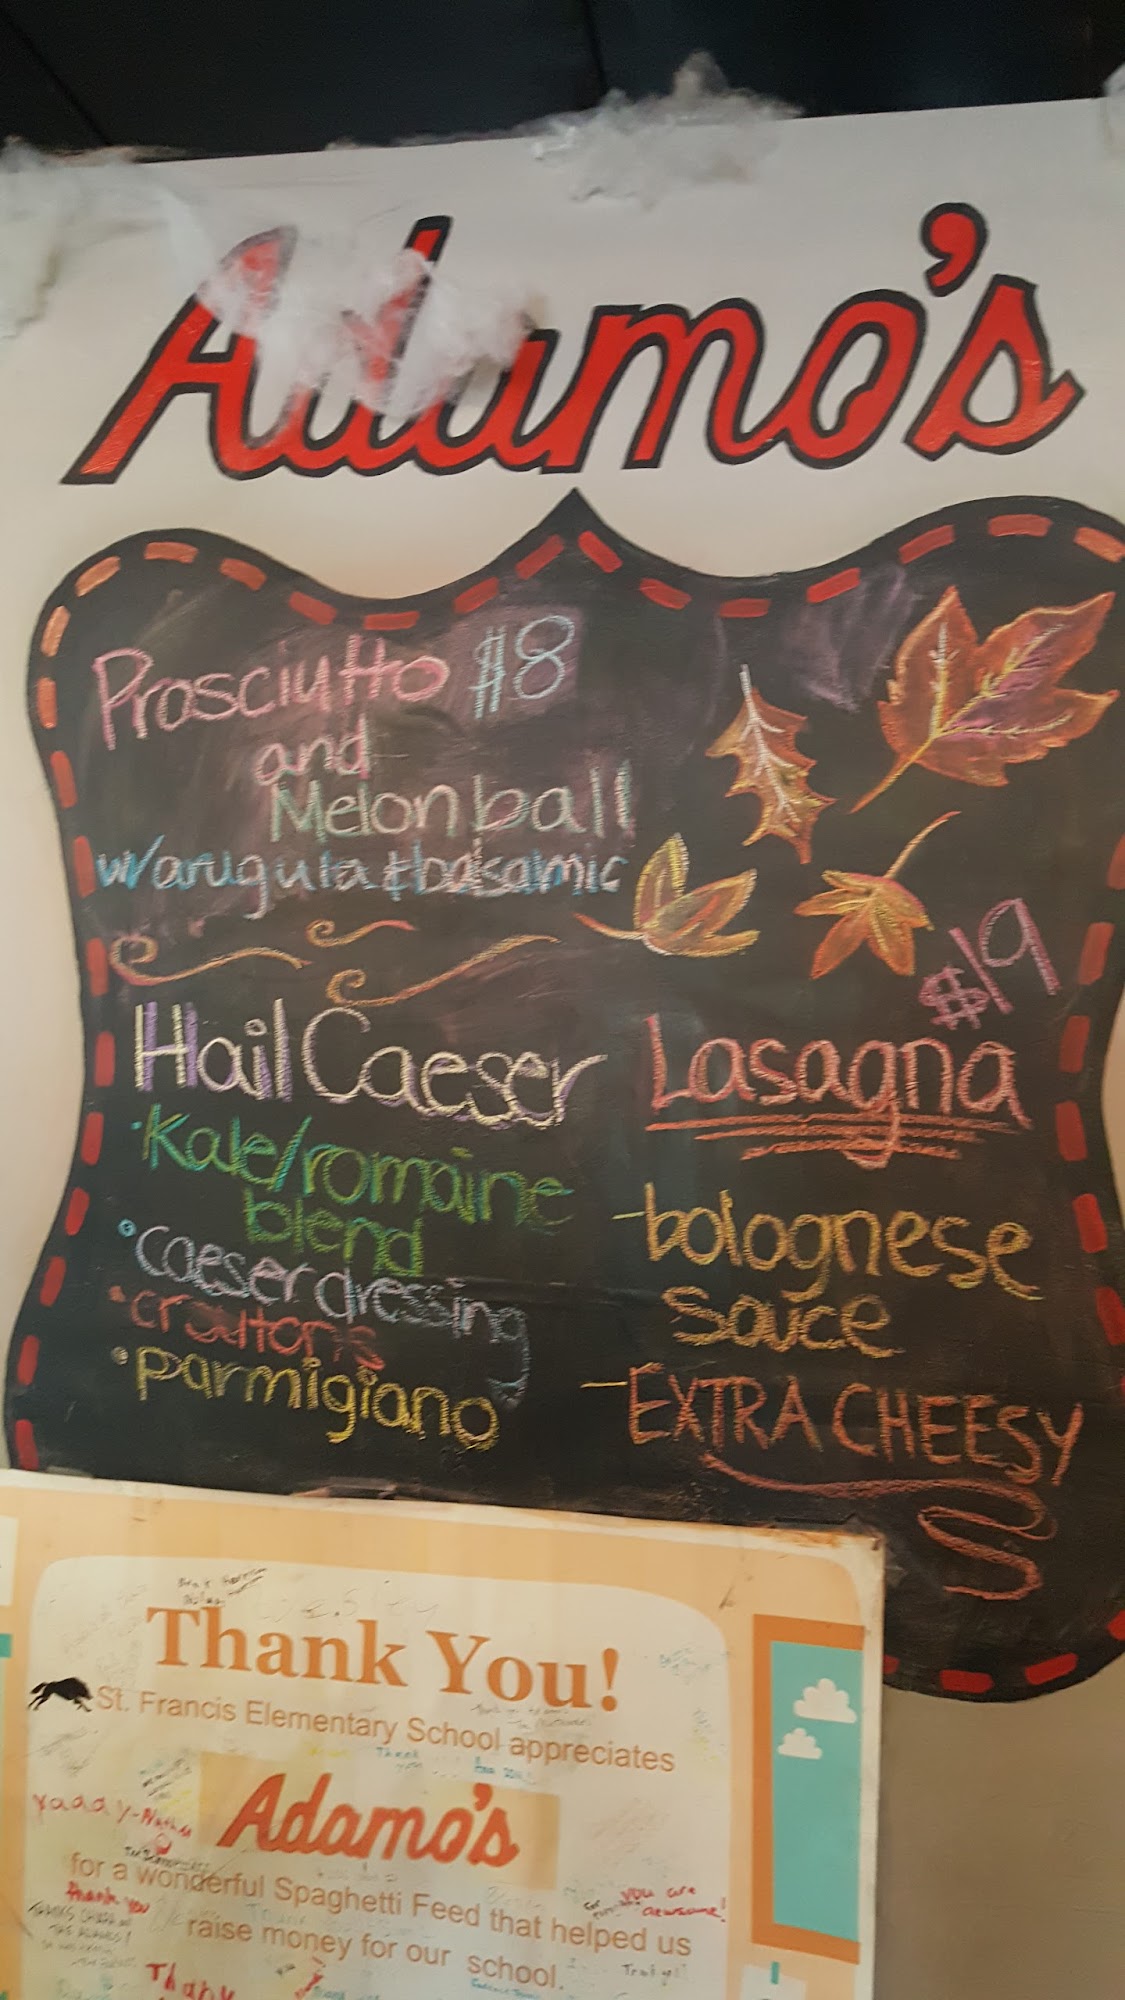 Adamo's
Prosciutto $8
and
Melon ball
w/arugula & balsamic
Hail Caeser
• Kale/romaine
blend
• Caeser dressing
• croutons
• parmigiano
$19
Lasagna
- bolognese
sauce
- EXTRA CHEESY
Thank You!
St. Francis Elementary School appreciates
Adamo's
for a wonderful Spaghetti Feed that helped us
raise money for our school.
Yaaay-
Thank you
you are
awesome!
Thank